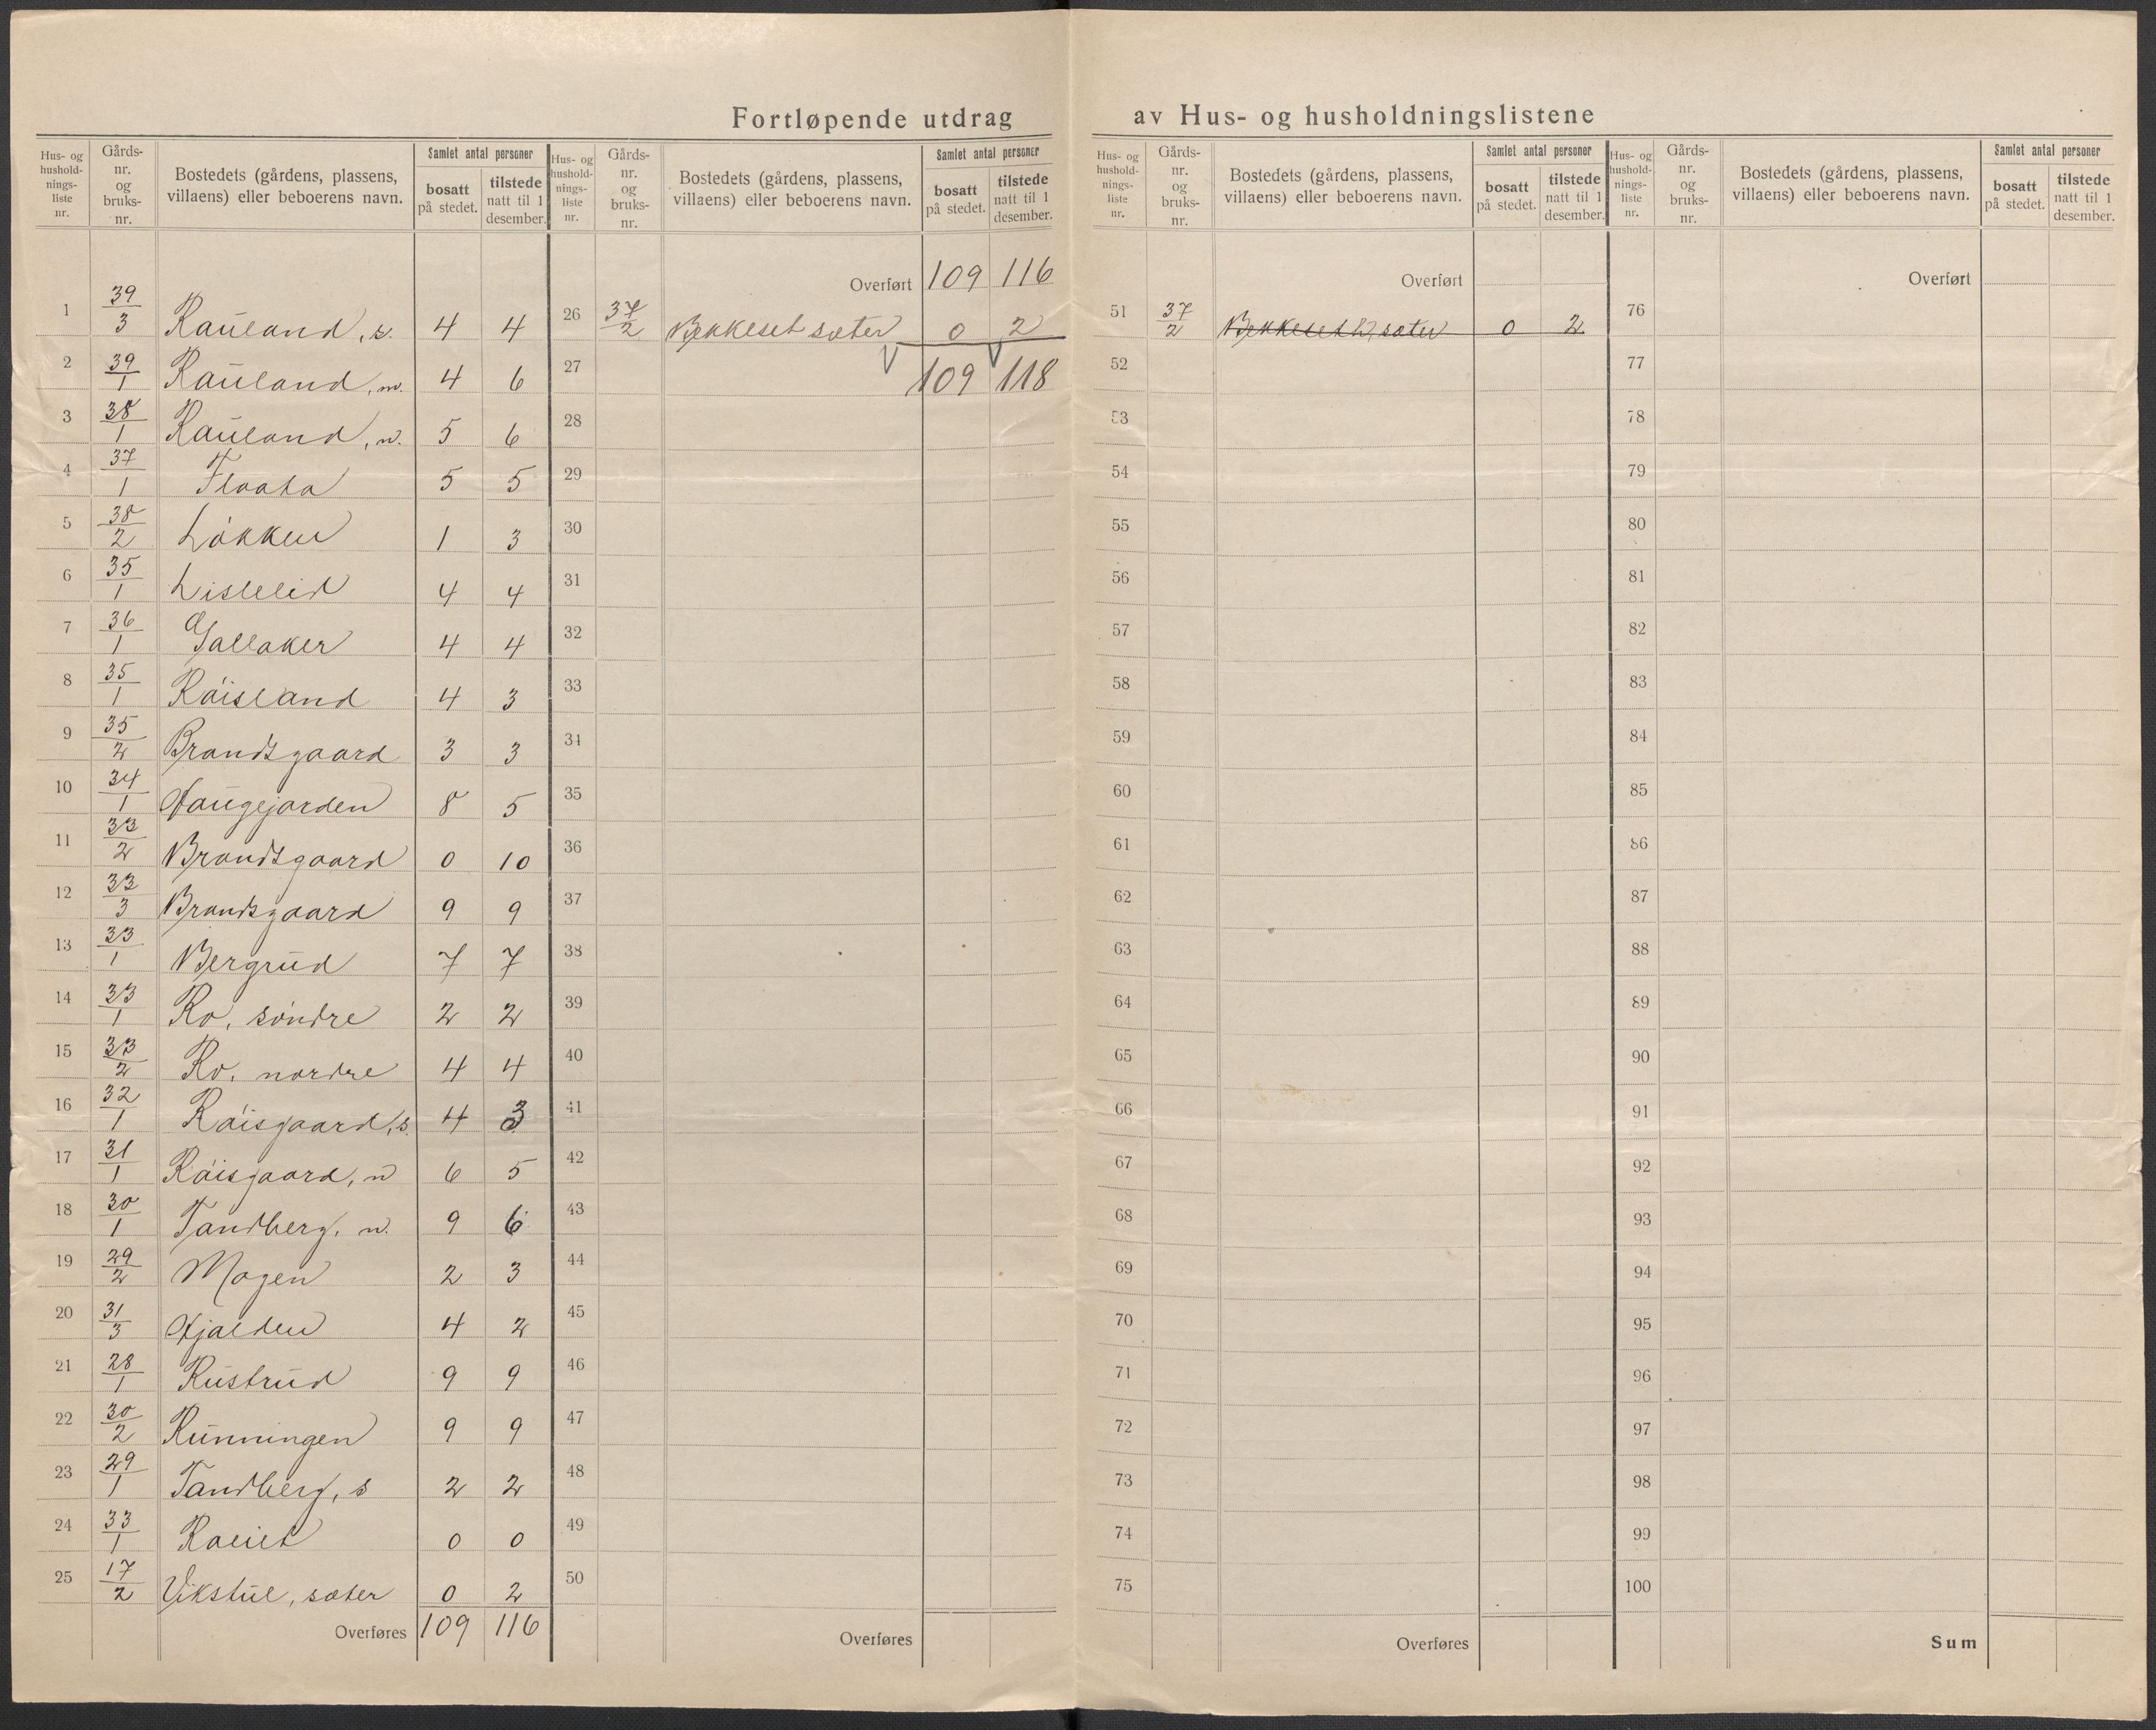 Fortløpende utdrag av Hus- og husholdningslistene
Hus- og hushold- nings- liste nr. | Gårds- nr. og bruks- nr. | Bostedets (gårdens, plassens, villaens) eller beboerens navn. | Samlet antal personer | bosatt på stedet. | tilstede natt til 1 desember.
1 39/3 Rauland, s. 4 4
2 39/1 Rauland, m. 4 6
3 38/1 Rauland, n. 5 6
4 37/1 Flaata 5 5
5 38/2 Løkken 1 3
6 35/1 Lislelid 4 4
7 36/1 Gallaker 4 4
8 35/1 Røisland 4 3
9 35/2 Brandsgaard 3 3
10 34/1 Haugejorden 8 5
11 33/2 Brandsgaard 0 10
12 33/3 Brandsgaard 9 9
13 33/1 Bergrud 7 7
14 33/1 Ro, søndre 2 2
15 33/2 Ro, nordre 4 4
16 32/1 Røisgaard, s. 4 3
17 31/1 Røisgaard, n 6 5
18 30/1 Tandberg, n. 9 6
19 29/2 Mogen 2 3
20 31/3 Hjalden 4 2
21 28/1 Rustrud 9 9
22 30/2 Runningen 9 9
23 29/1 Tandberg, s 2 2
24 33/1 Roeiet 0 0
25 17/2 Vikstul, sæter 0 2
Overføres 109 116
Hus- og hushold- nings- liste nr. | Gårds- nr. og bruks- nr. | Bostedets (gårdens, plassens, villaens) eller beboerens navn. | Samlet antal personer | bosatt på stedet. | tilstede natt til 1 desember.
Overført 109 116
26 37/2 Bekkeset sæter 0 2
27 109 118
28
29
30
31
32
33
34
35
36
37
38
39
40
41
42
43
44
45
46
47
48
49
50
Overføres
Hus- og hushold- nings- liste nr. | Gårds- nr. og bruks- nr. | Bostedets (gårdens, plassens, villaens) eller beboerens navn. | Samlet antal personer | bosatt på stedet. | tilstede natt til 1 desember.
Overført
51 37/2 Bekkeset sæter 0 2
52
53
54
55
56
57
58
59
60
61
62
63
64
65
66
67
68
69
70
71
72
73
74
75
Overføres
Hus- og hushold- nings- liste nr. | Gårds- nr. og bruks- nr. | Bostedets (gårdens, plassens, villaens) eller beboerens navn. | Samlet antal personer | bosatt på stedet. | tilstede natt til 1 desember.
Overført
76
77
78
79
80
81
82
83
84
85
86
87
88
89
90
91
92
93
94
95
96
97
98
99
100
Sum